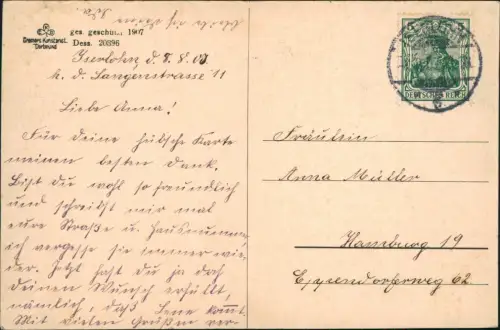 Cramers Kunstanst.
Dortmund
ges. geschützt 1907
Dess. 20396
Iserlohn, d. 8.8.07.
h. d. Langenstrasse 11
Liebe Anna!
Für deine hübsche Karte
meinen besten Dank.
Bist du wohl so freundlich
und schreibst mir mal
eure Straße u. Hausnummer,
ich vergesse sie immer wie-
der. Jetzt hast du ja doch
deinen Wunsch erfüllt,
nämlich, daß Lene kommt.
Mit vielen Grüßen ver-
DEUTSCHES REICH
Fräulein
Anna Müller
Hamburg 19
Eppendorferweg 62